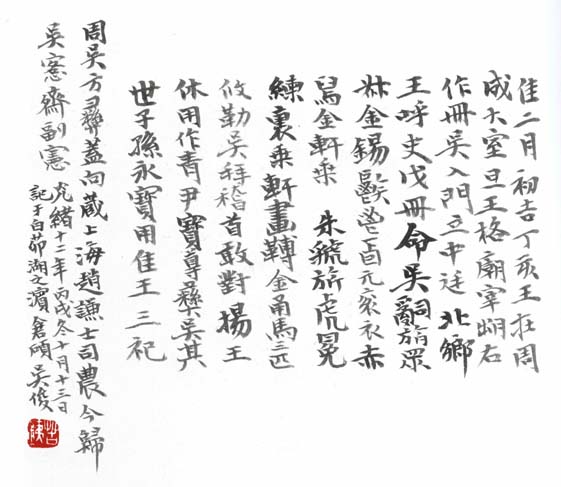 隹二月初吉丁亥王在周
成大室旦王格廟宰朏右
作冊吳入門立中廷北鄉
王呼史戊冊命吳旃眔
金錫鬯卣元袞衣赤
舄金軒乘 朱虢旂虎冕
練裏乘軒畫轉金甬馬三匹
攸勒吳拜稽首敢對揚王
休用作青尹寶尊彝吳其
世子孫永寶用隹王三祀
周吳方彝蓋向藏上海趙謙士司農今歸
吳愙齋副憲
光緒十二年丙戌冬十月十三日
記于白茆湖之濱 倉碩 吳俊